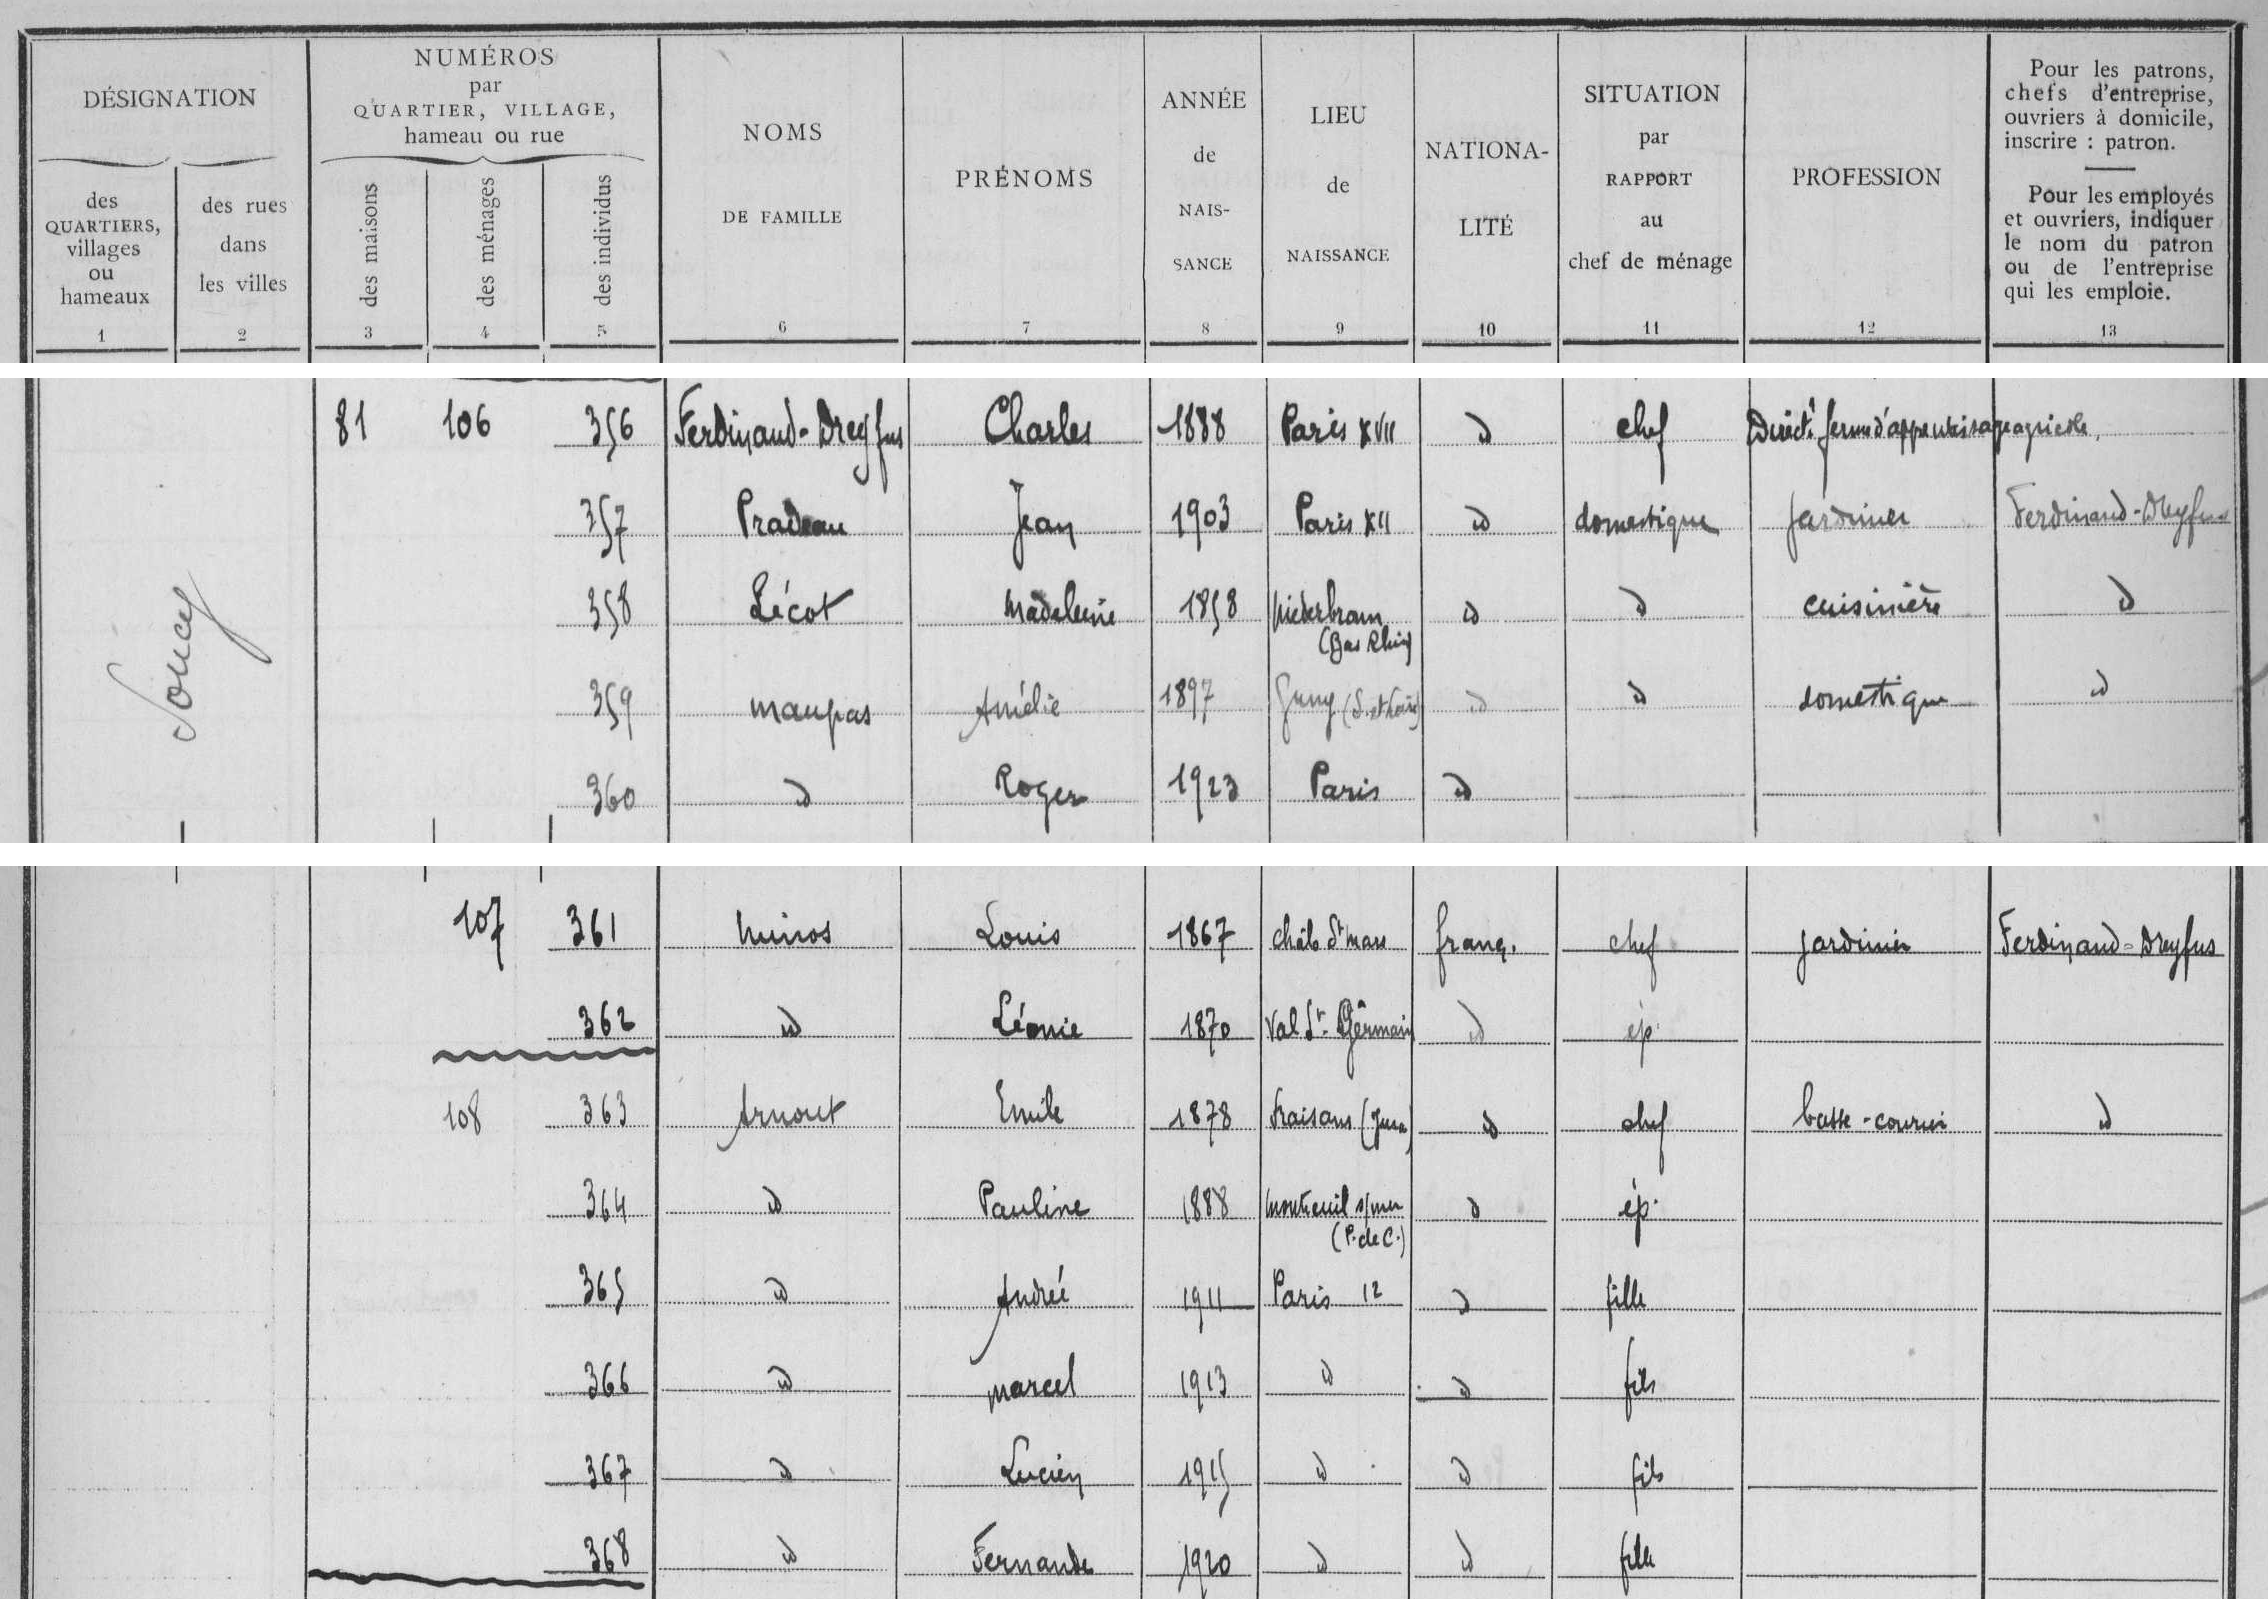 DÉSIGNATION
des QUARTIERS, villages ou hameaux
1
des rues dans les villes
2
NUMÉROS
par
QUARTIER, VILLAGE,
hameau ou rue
des maisons
3
des ménages
4
des individus
5
NOMS
DE FAMILLE
6
PRÉNOMS
7
ANNÉE
de
NAIS-
SANCE
8
LIEU
de
NAISSANCE
9
NATIONA-
LITÉ
10
SITUATION
par
RAPPORT
au
chef de ménage
11
PROFESSION
12
Pour les patrons,
chefs d'entreprise,
ouvriers à domicile,
inscrire : patron.
Pour les employés
et ouvriers, indiquer
le nom du patron
ou de l'entreprise
qui les emploie.
13
Soucy
81 106 356 Ferdinand-Dreyfus Charles 1888 Paris XVII d chef Direct. ferme d'apprentissage agricole
357 Pradeau Jean 1903 Paris XII d domestique jardinier Ferdinand-Dreyfus
358 Lécot Madeleine 1858 Niederbronn d d cuisinière d
(Bas Rhin)
359 Maupas Amélie 1897 (S. et Loire) d d domestique d
360 d Roger 1923 Paris d
107 361 Louis 1867 franç. chef jardinier Ferdinand-Dreyfus
362 d Léonie 1870 Val St. Germain d ép.
108 363 Arnout Emile 1878 Fraisans (Jura) d chef basse-courier d
364 d Pauline 1888 Montreuil s/mer d ép.
(P. de C.)
365 d Andrée 1911 Paris 12 d fille
366 d Marcel 1913 d d fils
367 d Lucien 1915 d d fils
368 d Fernande 1920 d d fille